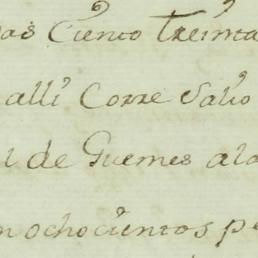 as Ciento Treinta
alli Corre Salio
l de Guemes ala
n ochocientos pe